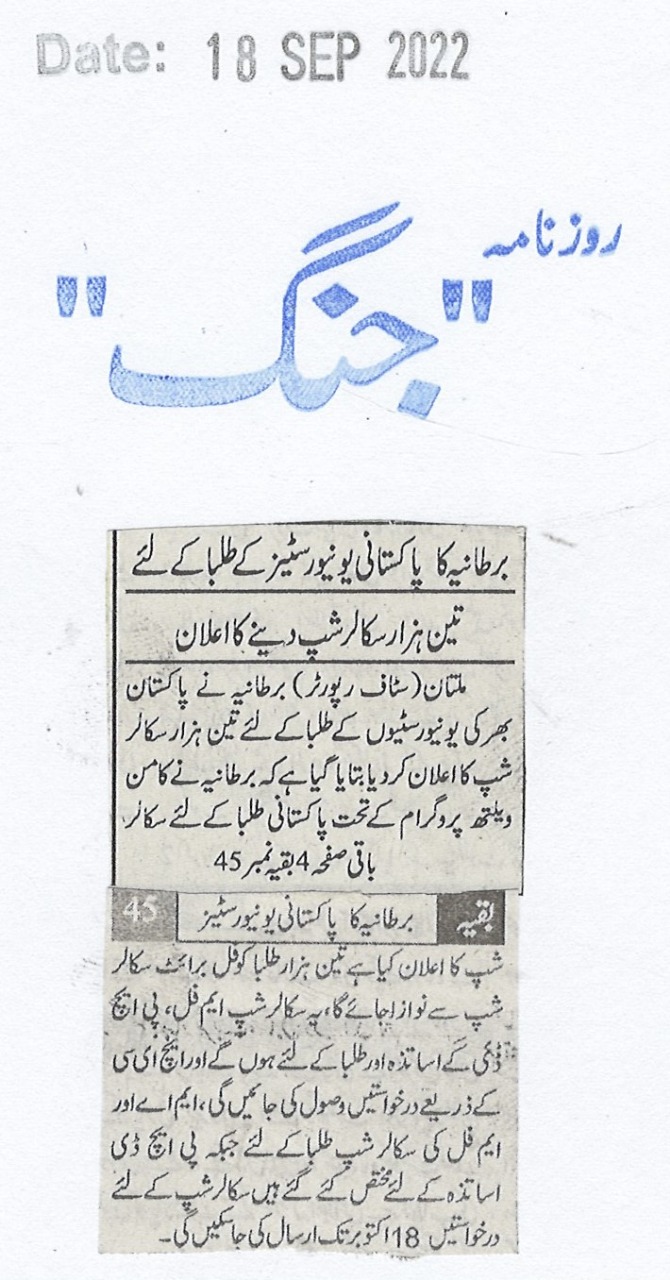 Date: 18 SEP 2022
روزنامہ
"جنگ"
برطانیہ کا پاکستانی یونیورسٹیز کے طلبا کے لئے
تین ہزار سکالر شپ دینے کا اعلان
ملتان (سٹاف رپورٹر) برطانیہ نے پاکستان
بھر کی یونیورسٹیوں کے طلبا کے لئے تین ہزار سکالر
شپ کا اعلان کر دیا بتایا گیا ہے کہ برطانیہ نے کامن
ویلتھ پروگرام کے تحت پاکستانی طلبا کے لئے سکالر
باقی صفحہ 4 بقیہ نمبر 45
بقیہ برطانیہ کا پاکستانی یونیورسٹیز 45
شپ کا اعلان کیا ہے تین ہزار طلبا کو فل برائٹ سکالر
شپ سے نوازا جائے گا، یہ سکالر شپ ایم فل، پی ایچ
ڈی کے اساتذہ اور طلبا کے لئے ہوں گے اور ایچ ای سی
کے ذریعے درخواستیں وصول کی جائیں گی، ایم اے اور
ایم فل کی سکالر شپ طلبا کے لئے جبکہ پی ایچ ڈی
اساتذہ کے لئے مختص کئے گئے ہیں سکالر شپ کے لئے
درخواستیں 18 اکتوبر تک ارسال کی جا سکیں گی۔